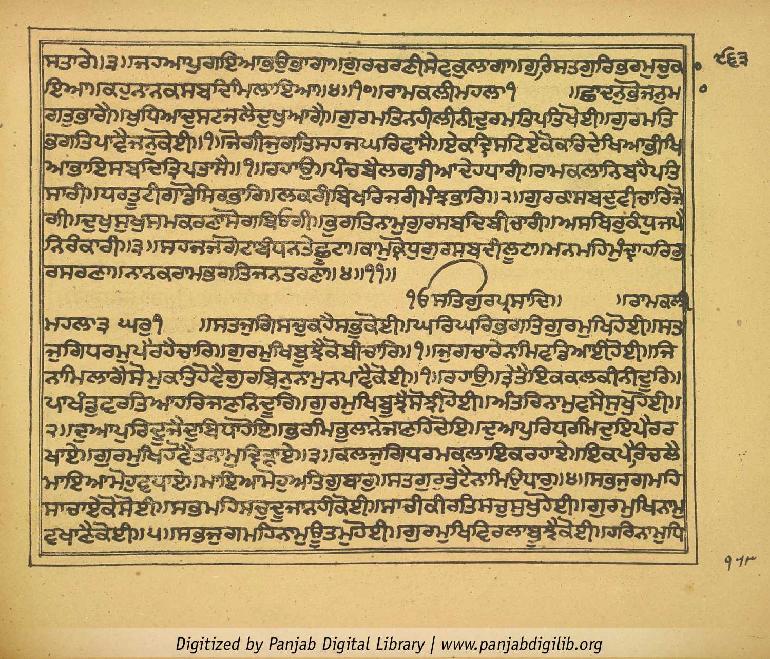 ਸਤਾਰੇ॥੩॥ਜਹਆਪੁਗਇਆਭਉਭਾਗਾ॥ਗੁਰਚਰਣੀਸੇਵਕੁਲਾਗਾ॥ਗੁਰਿਸਤਗੁਰਿਭਰਮੁਚੁਕ
ਇਆ॥ਕਹੁਨਾਨਕਸਬਦਿਮਿਲਾਇਆ॥੪॥੧੦॥ਰਾਮਕਲੀਮਹਲਾ੧ ॥ਛਾਦਨੁਭੋਜਨੁਮ
ਗਤੁਭਾਗੈ॥ਖੁਧਿਆਦੁਸਟਜਲੈਦੁਖੁਆਗੈ॥ਗੁਰਮਤਿਨਹੀਲੀਨੀਦੁਰਮਤਿਪਤਿਖੋਈ॥ਗੁਰਮਤਿ
ਭਗਤਿਪਾਵੈਜਨੁਕੋਈ॥੧॥ਜੋਗੀਜੁਗਤਿਸਹਜਘਰਿਵਾਸੈ॥ਏਕਦ੍ਰਿਸਟਿਏਕੋਕਰਿਦੇਖਿਆਭੀਖਿ
ਆਭਾਇਸਬਦਿਤ੍ਰਿਪਤਾਸੈ॥੧॥ਰਹਾਉ॥ਪੰਚਬੈਲਗਡੀਆਦੇਹਧਾਰੀ॥ਰਾਮਕਲਾਨਿਬਹੈਪਤਿ
ਸਾਰੀ॥ਧਰਤੂਟੀਗਾਡੋਸਿਰਭਾਰਿ॥ਲਕਰੀਬਿਖਰਿਜਰੀਮੰਝਭਾਰਿ॥੨॥ਗੁਰਕਾਸਬਦੁਵੀਚਾਰਿਜੋ
ਗੀ॥ਦੁਖੁਸੁਖੁਸਮਕਰਣਾਸੋਗਬਿਓਗੀ॥ਭੁਗਤਿਨਾਮੁਗੁਰਸਬਦਿਬੀਚਾਰੀ॥ਅਸਥਿਰੁਕੰਧੁਜਪੈ
ਨਿਰੰਕਾਰੀ॥੩॥ਸਹਜਜਗੋਟਾਬੰਧਨਤੇਛੂਟਾ॥ਕਾਮੁਕ੍ਰੋਧੁਗੁਰਸਬਦੀਲੂਟਾ॥ਮਨਮਹਿਮੁੰਦ੍ਰਾਹਰਿਗੁ
ਰਸਰਣਾ॥ਨਾਨਕਰਾਮਭਗਤਿਜਨਤਰਣਾ॥੪॥੧੧॥
੧ਓਸਤਿਗੁਰਪ੍ਰਸਾਦਿ॥ ॥ਰਾਮਕਲੀ
ਮਹਲਾ੩ ਘਰੁ੧ ॥ਸਤਜੁਗਿਸਚੁਕਹੈਸਭੁਕੋਈ॥ਘਰਿਘਰਿਭਗਤਿਗੁਰਮੁਖਿਹੋਈ॥ਸਤ
ਜੁਗਿਧਰਮੁਪੈਰਹੈਚਾਰਿ॥ਗੁਰਮੁਖਿਬੂਝੈਕੋਬੀਚਾਰਿ॥੧॥ਜੁਗਚਾਰੇਨਾਮਿਵਡਿਆਈਹੋਈ॥ਜਿ
ਨਾਮਿਲਾਗੈਸੋਮੁਕਤਿਹੋਵੈਗੁਰਬਿਨੁਨਾਮੁਨਪਾਵੈਕੋਈ॥੧॥ਰਹਾਉ॥ਤ੍ਰੇਤੈਇਕਕਲਕੀਨੀਦੂਰਿ॥
ਪਾਖੰਡੁਵਰਤਿਆਹਰਿਜਾਣਨਿਦੂਰਿ॥ਗੁਰਮੁਖਿਬੂਝੈਸੋਝੀਹੋਈ॥ਅੰਤਰਿਨਾਮੁਵਸੈਸੁਖੁਹੋਈ॥
੨॥ਦੁਆਪੁਰਿਦੂਜੈਦੁਬਿਧਾਹੋਇ॥ਭਰਮਿਭੁਲਾਨੇਜਾਣਹਿਦੋਇ॥ਦੁਆਪੁਰਿਧਰਮਿਦੁਇਪੈਰਰ
ਖਾਏ॥ਗੁਰਮੁਖਿਹੋਵੈਤਨਾਮੁਦ੍ਰਿੜਾਏ॥੩॥ਕਲਜੁਗਿਧਰਮਕਲਾਇਕਰਹਾਏ॥ਇਕਪੈਰਿਚਲੈ
ਮਾਇਆਮੋਹੁਵਧਾਏ॥ਮਾਇਆਮੋਹੁਅਤਿਗੁਬਾਰੁ॥ਸਤਗੁਰੁਭੇਟੈਨਾਮਿਉਧਾਰੁ॥੪॥ਸਭਜੁਗਮਹਿ
ਸਾਚਾਏਕੋਸੋਈ॥ਸਭਮਹਿਸਚੁਦੂਜਾਨਹੀਕੋਈ॥ਸਾਚੀਕੀਰਤਿਸਚੁਸੁਖੁਹੋਈ॥ਗੁਰਮੁਖਿਨਾਮੁ
ਵਖਾਣੈਕੋਈ॥੫॥ਸਭਜੁਗਮਹਿਨਾਮੁਊਤਮੁਹੋਈ॥ਗੁਰਮੁਖਿਵਿਰਲਾਬੂਝੈਕੋਈ॥ਹਰਿਨਾਮੁਧਿ
Digitized by Panjab Digital Library | www.panjabdigilib.org